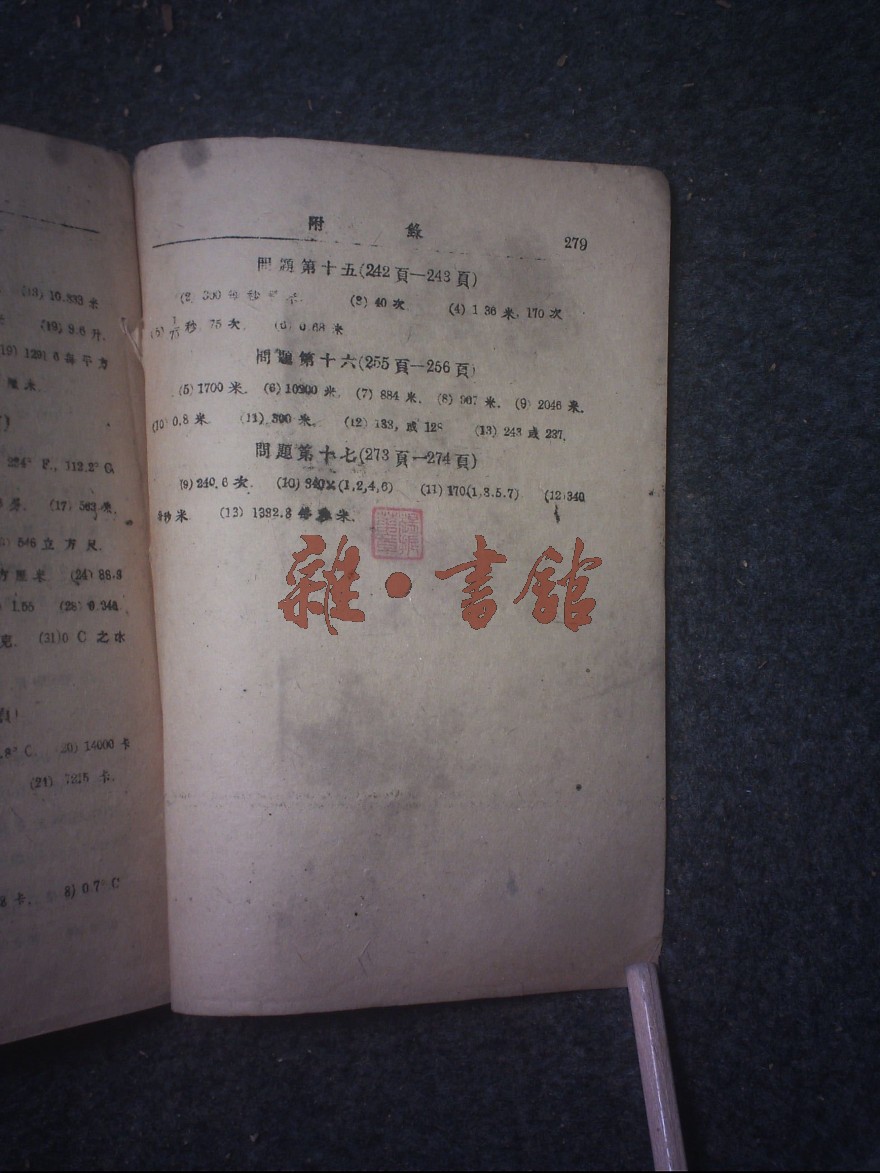 (18) 10.333 米
(19) 9.6 斤.
(19) 1291.6 每平方
厘米.
224° F., 112.2° C.
(17) 563
546 立方尺.
方厘米 (24) 88.8
1.55 (28) 0.244
克. (31) 0 C 之水
.8° C. 20) 14000 卡
(21) 7215 卡.
卡. 8) 0.7° C
附 錄 279
問題第十五(242頁—243頁)
(3) 40 次 (4) 1 36 米. 170 次
(5) 1/75 秒 75 次. (6) 0.68 米
問題第十六(255頁—256頁)
(5) 1700 米. (6) 10200 米. (7) 884 米. (8) 907 米. (9) 2046 米.
(10) 0.8 米 (11) 300 米. (12) 133, 或 128 (13) 243 或 237.
問題第十七(273頁—274頁)
(9) 240.6 次. (10) 340×(1,2,4,6) (11) 170(1.3.5.7) (12) 340
每秒米 (13) 1382.8 每秒米.
雜•書館